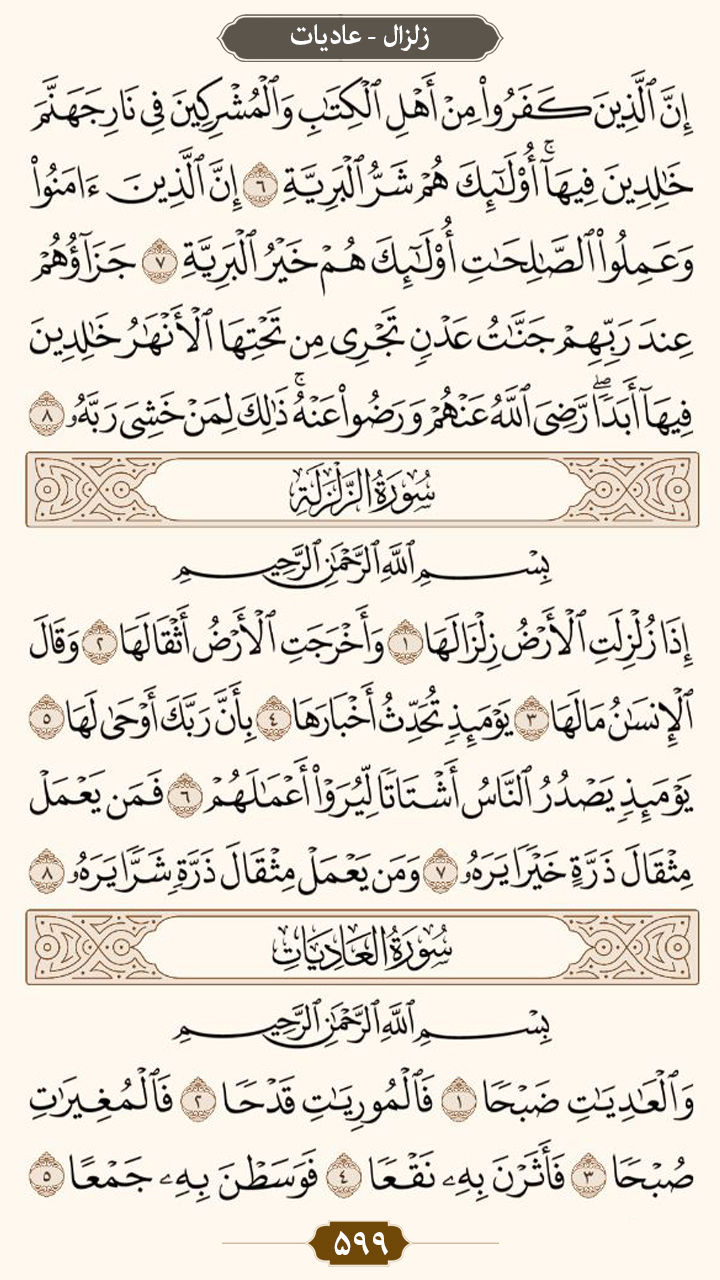 زلزال - عادیات
إِنَّ ٱلَّذِينَ كَفَرُوا۟ مِنْ أَهْلِ ٱلْكِتَٰبِ وَٱلْمُشْرِكِينَ فِى نَارِ جَهَنَّمَ
خَٰلِدِينَ فِيهَآ ۚ أُو۟لَٰٓئِكَ هُمْ شَرُّ ٱلْبَرِيَّةِ ٦ إِنَّ ٱلَّذِينَ ءَامَنُوا۟
وَعَمِلُوا۟ ٱلصَّٰلِحَٰتِ أُو۟لَٰٓئِكَ هُمْ خَيْرُ ٱلْبَرِيَّةِ ٧ جَزَآؤُهُمْ
عِندَ رَبِّهِمْ جَنَّٰتُ عَدْنٍ تَجْرِى مِن تَحْتِهَا ٱلْأَنْهَٰرُ خَٰلِدِينَ
فِيهَآ أَبَدًا ۖ رَّضِىَ ٱللَّهُ عَنْهُمْ وَرَضُوا۟ عَنْهُ ۚ ذَٰلِكَ لِمَنْ خَشِىَ رَبَّهُۥ ٨
سُورَةُ الزَّلْزَلَةِ
بِسْمِ ٱللَّهِ ٱلرَّحْمَٰنِ ٱلرَّحِيمِ
إِذَا زُلْزِلَتِ ٱلْأَرْضُ زِلْزَالَهَا ١ وَأَخْرَجَتِ ٱلْأَرْضُ أَثْقَالَهَا ٢ وَقَالَ
ٱلْإِنسَٰنُ مَا لَهَا ٣ يَوْمَئِذٍ تُحَدِّثُ أَخْبَارَهَا ٤ بِأَنَّ رَبَّكَ أَوْحَىٰ لَهَا ٥
يَوْمَئِذٍ يَصْدُرُ ٱلنَّاسُ أَشْتَاتًا لِّيُرَوْا۟ أَعْمَٰلَهُمْ ٦ فَمَن يَعْمَلْ
مِثْقَالَ ذَرَّةٍ خَيْرًا يَرَهُۥ ٧ وَمَن يَعْمَلْ مِثْقَالَ ذَرَّةٍ شَرًّا يَرَهُۥ ٨
سُورَةُ العَادِيَاتِ
بِسْمِ ٱللَّهِ ٱلرَّحْمَٰنِ ٱلرَّحِيمِ
وَٱلْعَٰدِيَٰتِ ضَبْحًا ١ فَٱلْمُورِيَٰتِ قَدْحًا ٢ فَٱلْمُغِيرَٰتِ
صُبْحًا ٣ فَأَثَرْنَ بِهِۦ نَقْعًا ٤ فَوَسَطْنَ بِهِۦ جَمْعًا ٥
۵۹۹